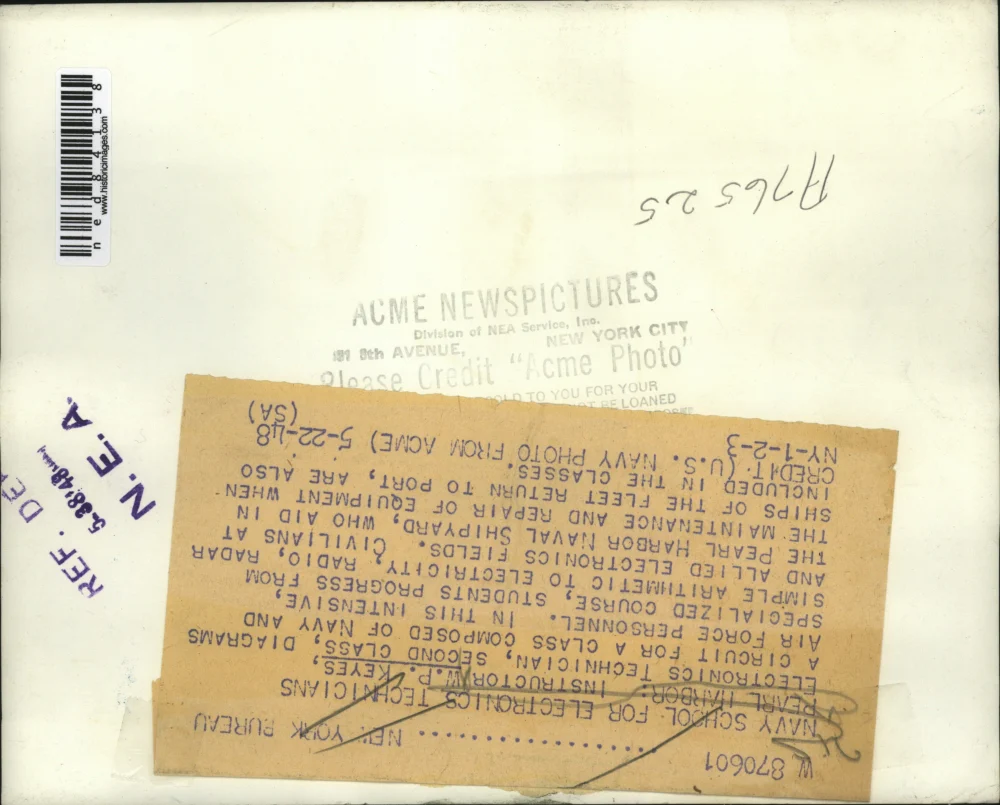 ned84138
www.historicimages.com
A76525
ACME NEWSPICTURES
Division of NEA Service, Inc.
8th AVENUE, NEW YORK CITY
Please Credit "Acme Photo"
SOLD TO YOU FOR YOUR
NOT BE LOANED
REF. DE
N. E. A.
W 870601
NEW YORK BUREAU
NAVY SCHOOL FOR ELECTRONICS TECHNICIANS
PEARL HARBOR: INSTRUCTOR W.P. KEYES,
ELECTRONICS TECHNICIAN, SECOND CLASS, DIAGRAMS
A CIRCUIT FOR A CLASS COMPOSED OF NAVY AND
AIR FORCE PERSONNEL. IN THIS INTENSIVE,
SPECIALIZED COURSE, STUDENTS PROGRESS FROM
SIMPLE ARITHMETIC TO ELECTRICITY, RADIO, RADAR
AND ALLIED ELECTRONICS FIELDS. CIVILIANS AT
THE PEARL HARBOR NAVAL SHIPYARD, WHO AID IN
THE MAINTENANCE AND REPAIR OF EQUIPMENT WHEN
SHIPS OF THE FLEET RETURN TO PORT, ARE ALSO
INCLUDED IN THE CLASSES.
CREDIT (U.S. NAVY PHOTO FROM ACME) 5-22-48
NY-1-2-3 (SA)